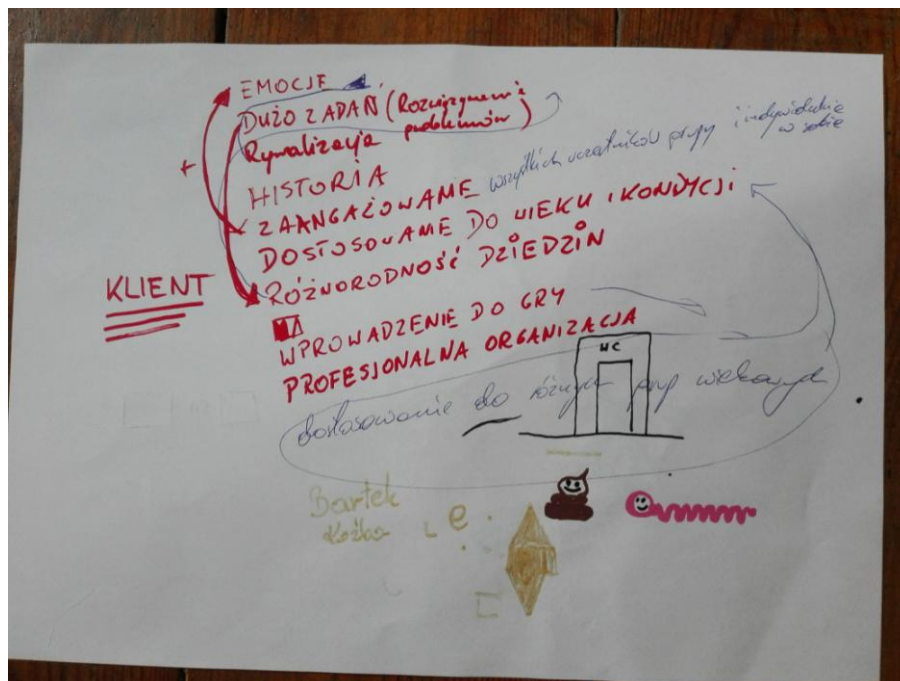 EMOCJE
DUŻO ZADAŃ (Rozwiązywanie problemów)
Rywalizacja
HISTORIA
+
ZAANGAŻOWANIE wszystkich uczestników grupy i indywidualnie w sobie
DOSTOSOWANIE DO WIEKU I KONDYCJI
KLIENT
RÓŻNORODNOŚĆ DZIEDZIN
WPROWADZENIE DO GRY
PROFESJONALNA ORGANIZACJA
WC
dostosowanie do różnych grup wiekowych
Bartek